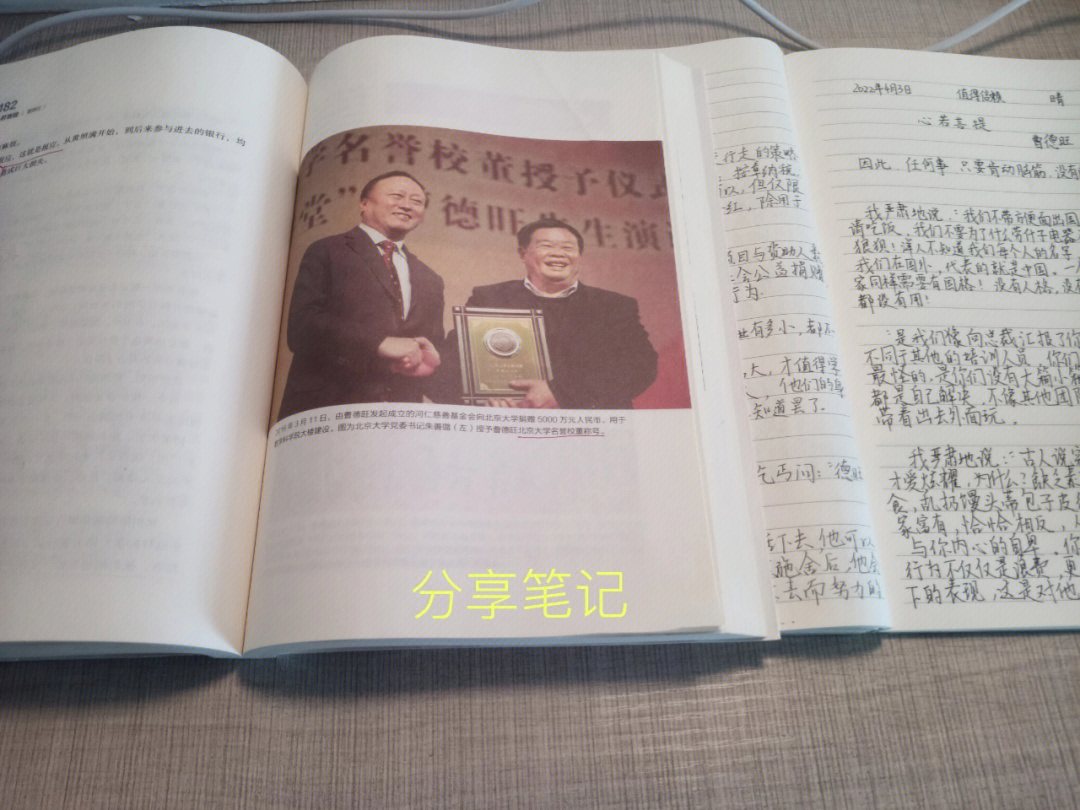 182
从黄炯满开始，到后来参与进去的银行，均
学名誉校董授予仪式
堂”
德旺先生演
年3月11日，由曹德旺发起成立的河仁慈善基金会向北京大学捐赠5000万元人民币，用于
大楼建设。图为北京大学党委书记朱善璐（左）授予曹德旺北京大学名誉校董称号。
分享笔记
行走的策略
按章纳税
以，但仅限
红，除用于
项目与资助人
会公益捐赠
行为
业有多小，都不
大，才值得学
他们的身
知道罢了。
乞丐问：“德旺
活下去，他可以
施舍后，他会
去而努力的
2022年4月3日 值得信赖 晴
心若菩提
曹德旺
因此，任何事，只要肯动脑筋，没有
我严肃地说：“我们不带方便面出国
请吃饭。我们不要为了什么带什子电器
狼狈！洋人不知道我们每个人的名字
我们在国外，代表的就是中国。一
家同样需要有国格！没有人格，没
都没有用！
是我们像向总裁汇报了你
不同于其他的培训人员，你们
最怪的，是你们没有大箱小箱
都是自己解决，不像其他团
带着出去外面玩。
我严肃地说：“古人说富
才爱炫耀，为什么？缺乏素
食，乱扔馒头蒂包子皮
家富有，恰恰相反，
与你内心的自卑。你
行为不仅仅是浪费，更
下的表现，这是对他